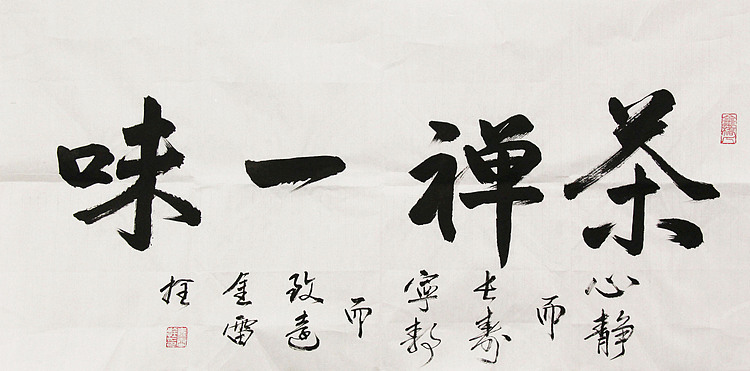 茶禅一味
心静
而
长寿
寧静
而
致远
金雷